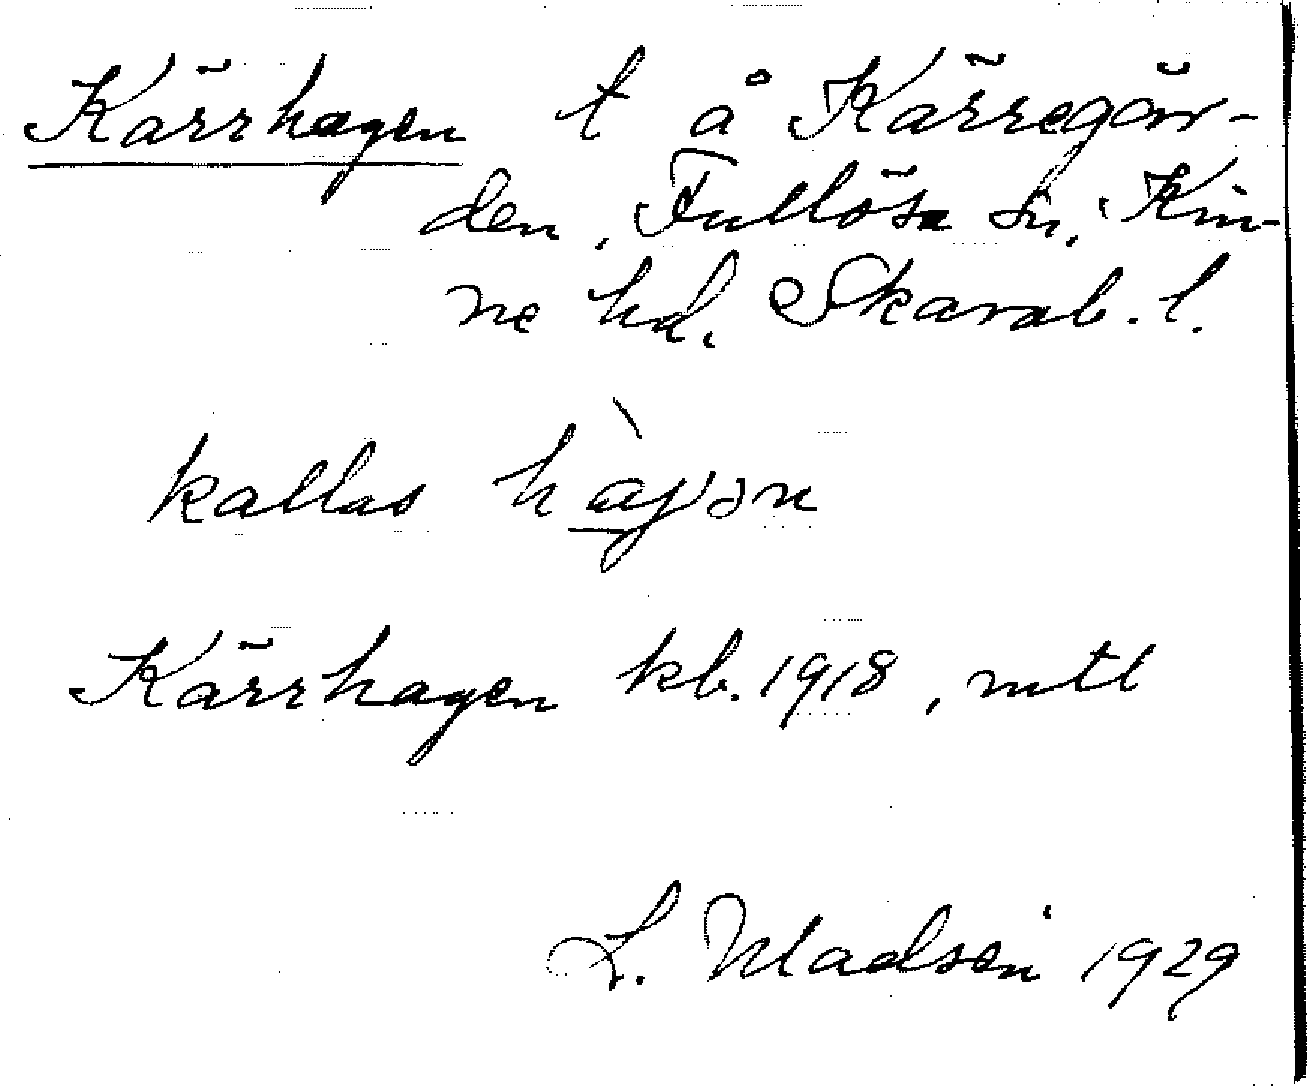 Kärrhagen t å Kärregår-
den, Fullösa sn, Kin-
ne hd. Skarab. l.
kallas
Kärrhagen kb. 1918, mtl
L. Madsén 1929